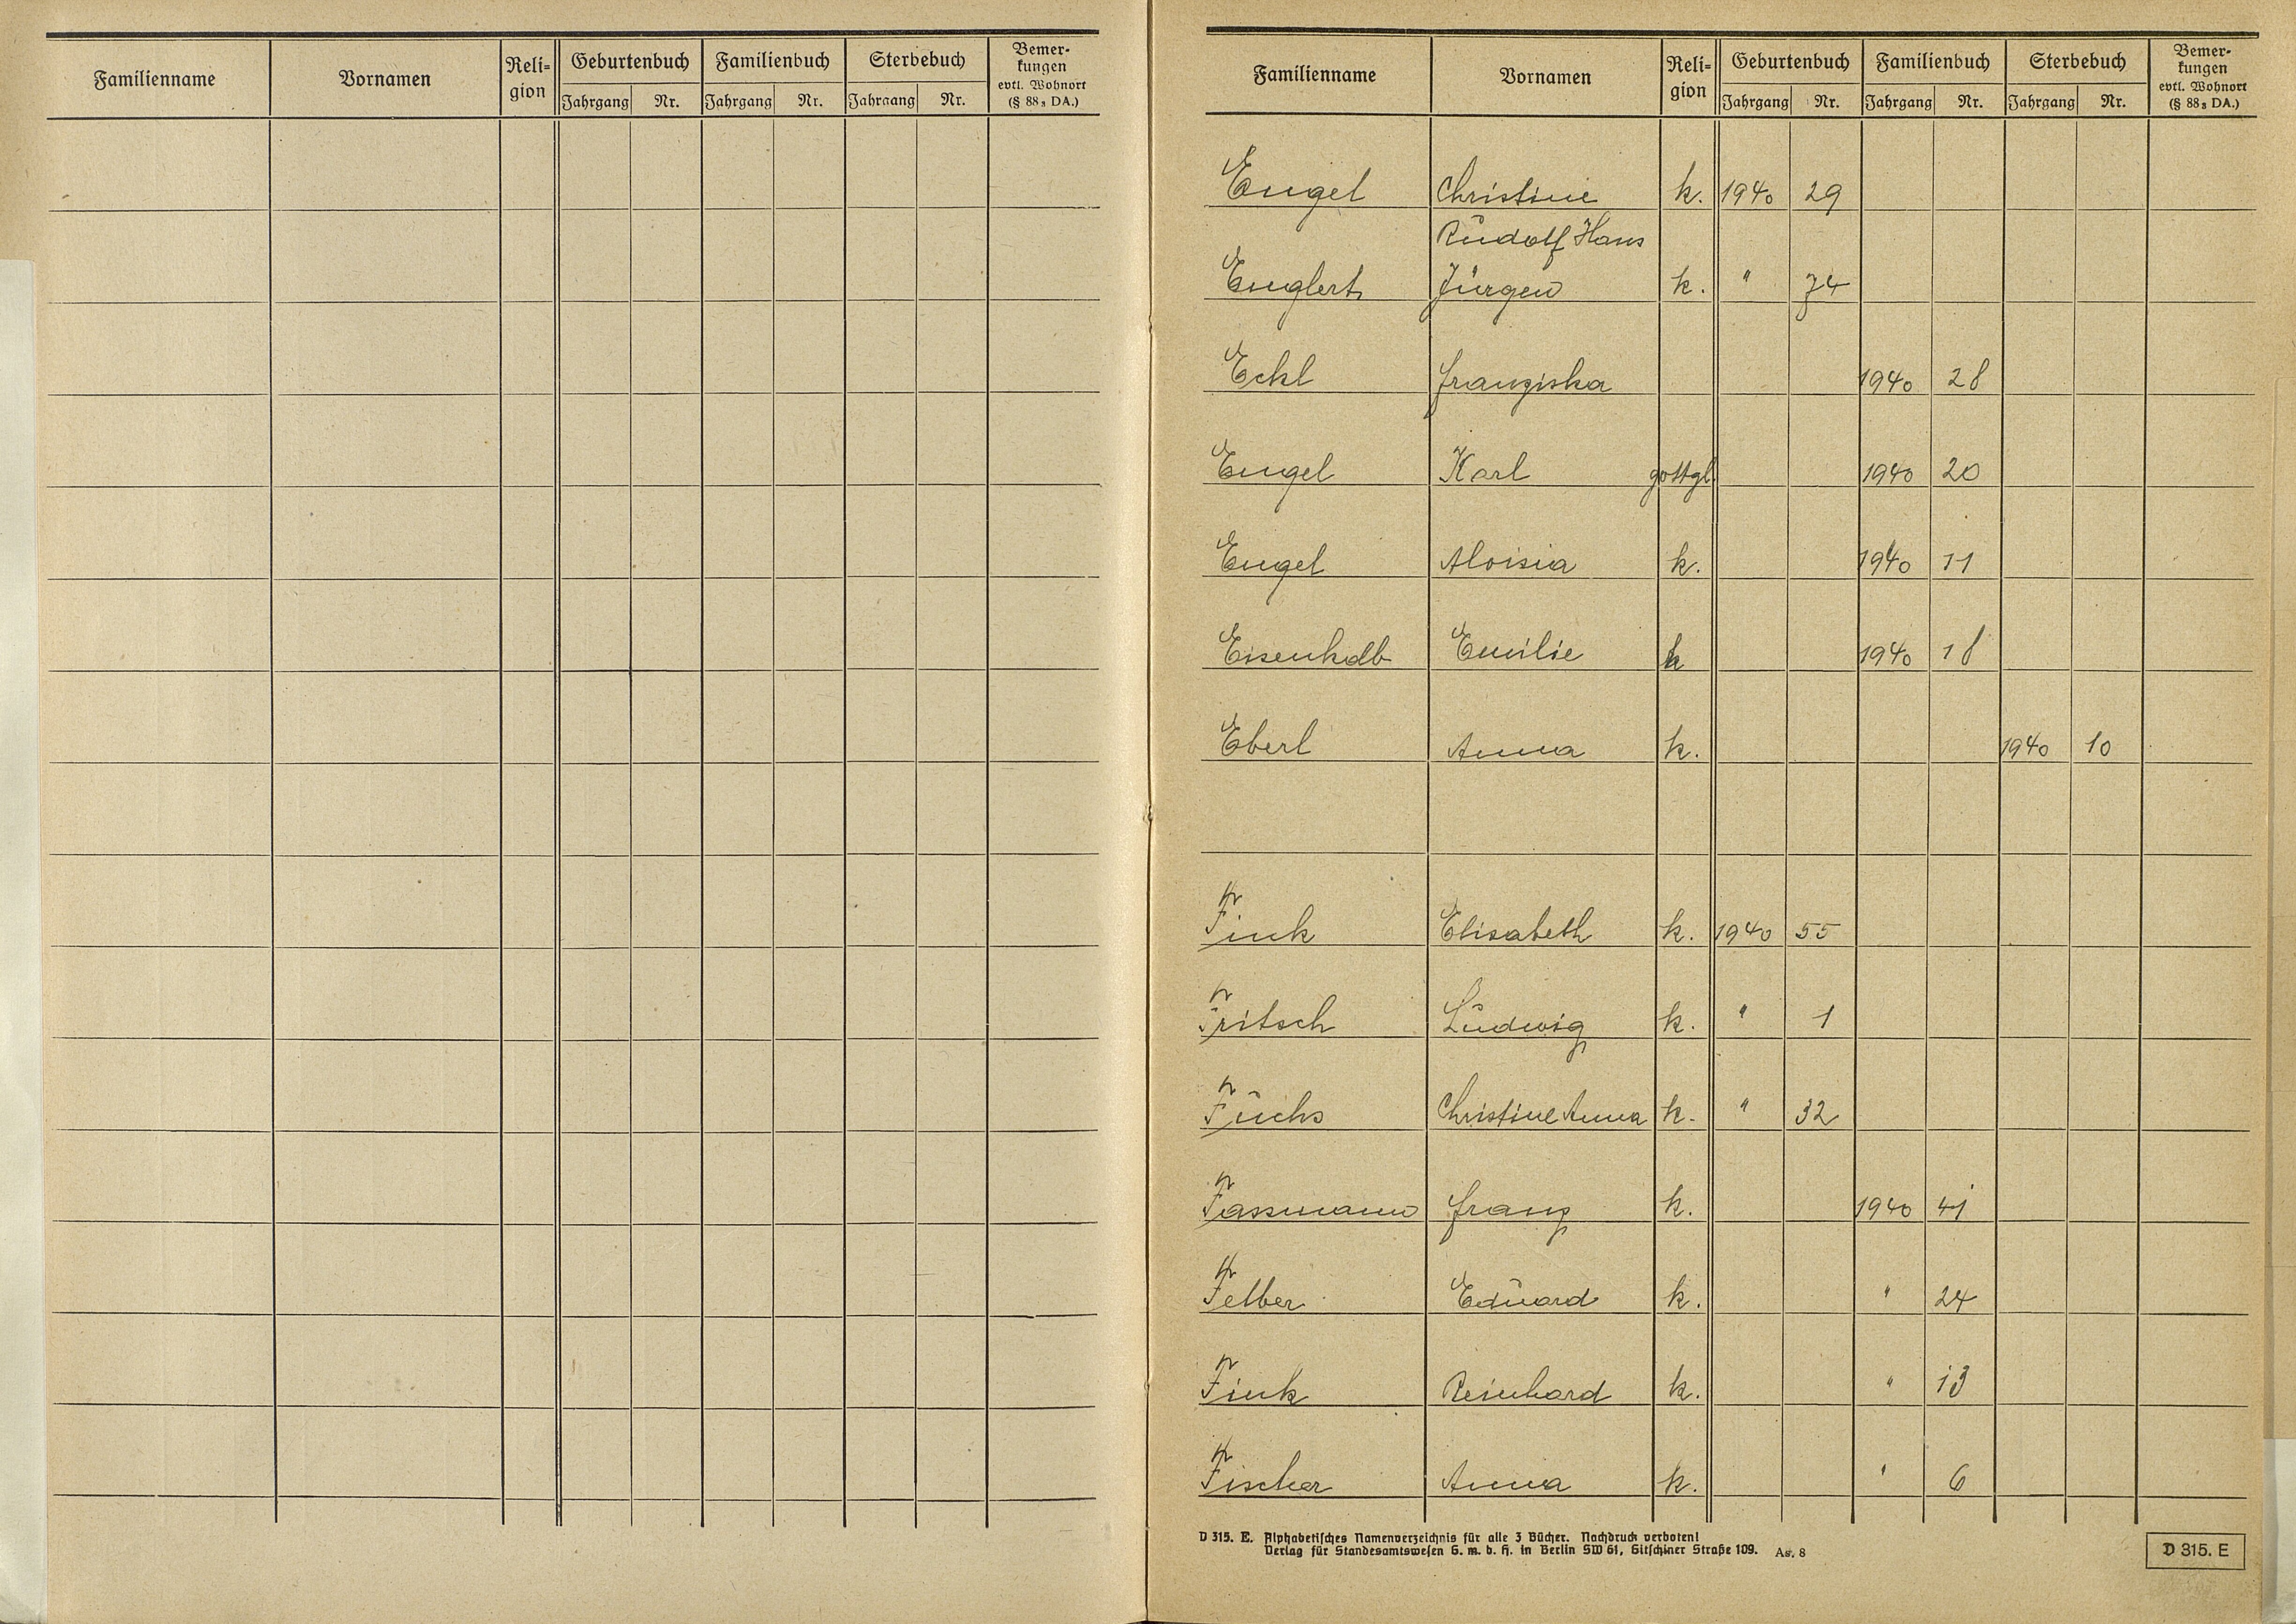 Familienname Vornamen Reli- gion Geburtenbuch Familienbuch Sterbebuch Bemer- kungen evtl. Wohnort (§ 88₃ DA.)
Jahrgang Nr. Jahrgang Nr. Jahrgang Nr.
Familienname Vornamen Reli- gion Geburtenbuch Familienbuch Sterbebuch Bemer- kungen evtl. Wohnort (§ 88₃ DA.)
Jahrgang Nr. Jahrgang Nr. Jahrgang Nr.
Engel Christine k. 1940 29
Rudolf Hans
Englert Jürgen k. " 74
Eckl Franziska 1940 28
Engel Karl gottgl. 1940 20
Engel Aloisia k. 1940 11
Eisenkolb Emilie k 1940 18
Eberl Anna k. 1940 10
Fink Elisabeth k. 1940 55
Fritsch Ludwig k. " 1
Fuchs Christine Anna k. " 32
Fassmann Franz k. 1940 41
Felber Eduard k. " 24
Fink Reinhard k. " 13
Fischer Anna k. " 6
D 315. E. Alphabetisches Namenverzeichnis für alle 3 Bücher. Nachdruck verboten!
Verlag für Standesamtswesen G. m. b. H. in Berlin SW 61, Gitschiner Straße 109. A. 8
D 315. E